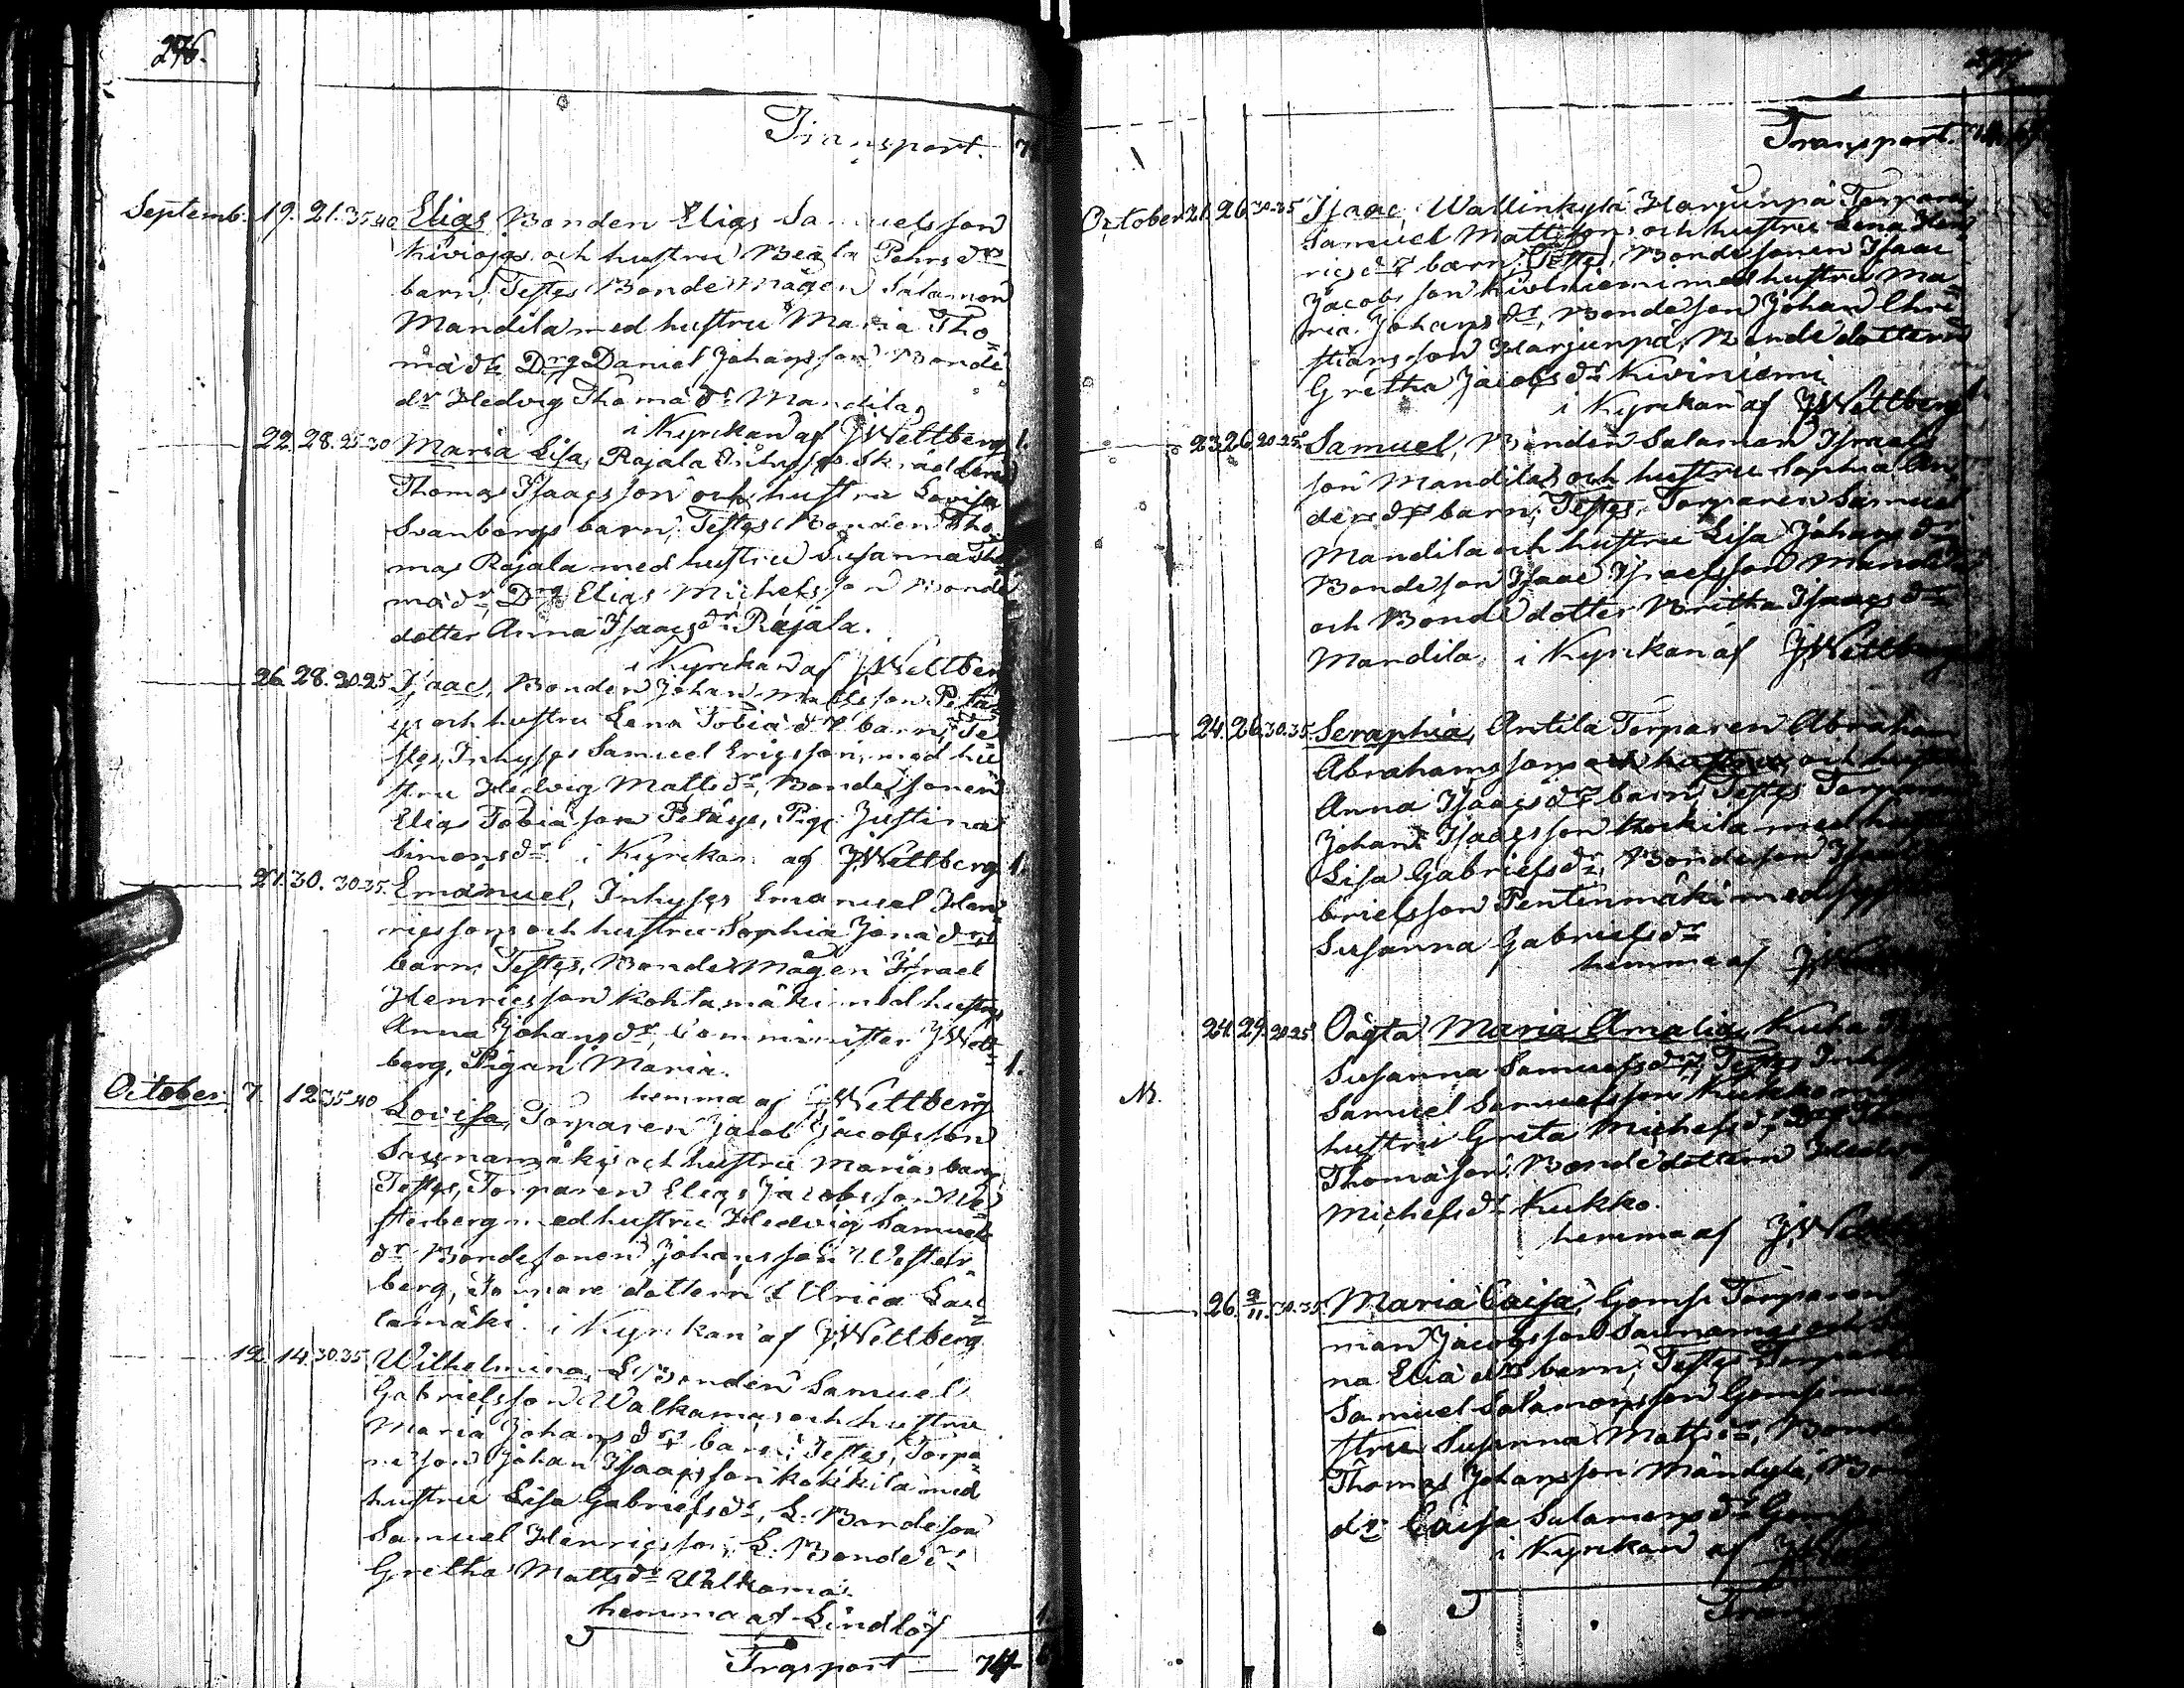 276.
Transport. 7
Septemb. 19. 21. 35-40 Elias, Bonden Elias Samuelsson
Kivioja och hustru Beata Pehrs drs
barn, Testes Bonde Mågen Salamon
Mandila med hustru Maria Tho=
mä dr Drg Daniel Johansson Bonde
dr Hedvig Thomä dr Mandila,
i Kyrckan af JWettberg 1.
22. 28. 25-30 Maria Lisa, Rajala Inhyses Skräddaren
Thomas Isaacsson och hustru Lovisa
Svanbergs barn, Testes Bonden Tho=
mas Rajala med hustru Susanna Tho=
mä dr, Drg Elias Michelsson Bonde
dotter Anna Isaacs dr Rajala.
i Kyrckan af JWettberg
26. 28. 20-25 Isaac, Bonden Johan Mattsson Petä=
ys och hustru Lena Tobiä drs barn, Te=
stes, Inhyses Samuel Ericsson, med hu=
stru Hedvig Matts dr, Bondesonen
Elias Tobiä son Petäys, Pig. Justina
Simons dr i Kyrckan af JWettberg 1.
27. 30. 30-35. Emanuel, Inhyses Emanuel Hen=
ricssons och hustru Sophia Jonä drs
barn, Testes, Bonde Mågen Israel
Henricsson Kohtamäki med hustru
Anna Johans dr, Comminister JWett=
berg, Pigan Maria. 1.
hemma af JWettberg
October 7. 12 35-40 Lovisa, Torparen Jacob Jacobsson
Saunamäkis och hustru Marias barn
Testes, Torparen Elias Jacobsson We=
sterberg med hustru Hedvig Samuels
dr Bondesonen Johansson Wester=
berg, Torpare dottern Ulrica Lau=
lamäki. i Kyrckan af JWettberg
12. 14. 30.35 Wilhelmina, L. Bonden Samuel
Gabrielsson Walkamas och hustru
Maria Johans drs barn, Testes, Torpa=
re son Johan Isaacsson Kokkila med
hustru Lisa Gabriels dr, L. Bondeson
Samuel Henricsson, L. Bonde dr
Gretha Matts dr Walkama.
hemma af Lindlöf 1.
Trasport — 74
277
Transport.
October 21. 26. 30-35 Isaac, Wallinkylä Harjunpä Torparen
Samuel Mattssons och hustru Lena Hen=
rics drs barn, Testes, Bondesonen Isaac
Jacobsson Kiviniemi med hustru Ma=
ria Johans dr, Bondeson Johan Chri=
stiansson Harjunpä, Bonde dottern
Gretha Jacobs dr Kiviniemi
i Kyrckan af JWettberg 1.
23. 26. 20-25. Samuel, Bonden Salamon Israels
son Mandilas och hustru Sophia An=
ders drs barn, Testes, Torparen Samuel
Mandila och hustru Lisa Johans dr
Bondeson Isaac Israelsson Mandila
och Bonde dotter Britha Isaacs dr
Mandila, i Kyrckan af JWettberg
24. 26. 30.35. Seraphia, Antila Torparen Abraham
Abrahamssons och hustru och hustru
Anna Isaacs drs barn, Testes Torparen
Johan Isaacsson Kockila med hustru
Lisa Gabriels dr, Bondeson Isaac
brielsson Pentinmäki med
Susanna Gabriels dr
hemma af JW
24. 29. 20-25 Oägta Maria Amalia, Kuha
Susanna Samuels drs, Testes Inhy
N. Samuel Samuelsson Kukko
hustru Greta Michels dr, Drg
Thomäson, Bonde dottern Hedvig
Michels dr Kukko.
hemma af JWett
26. 2/11. 30.35. Maria Caisa, Gomsi Torparen
man Jacobsson Saunamas och
na Eliä drs barn, Testes Torpare
Samuel Salamonsson Gomsi
stru Susanna Matts dr, Bonde
Thomas Johansson Mändylä, Bon
dr Caisa Salamons dr Gomsi
i Kyrckan af JW
Tran